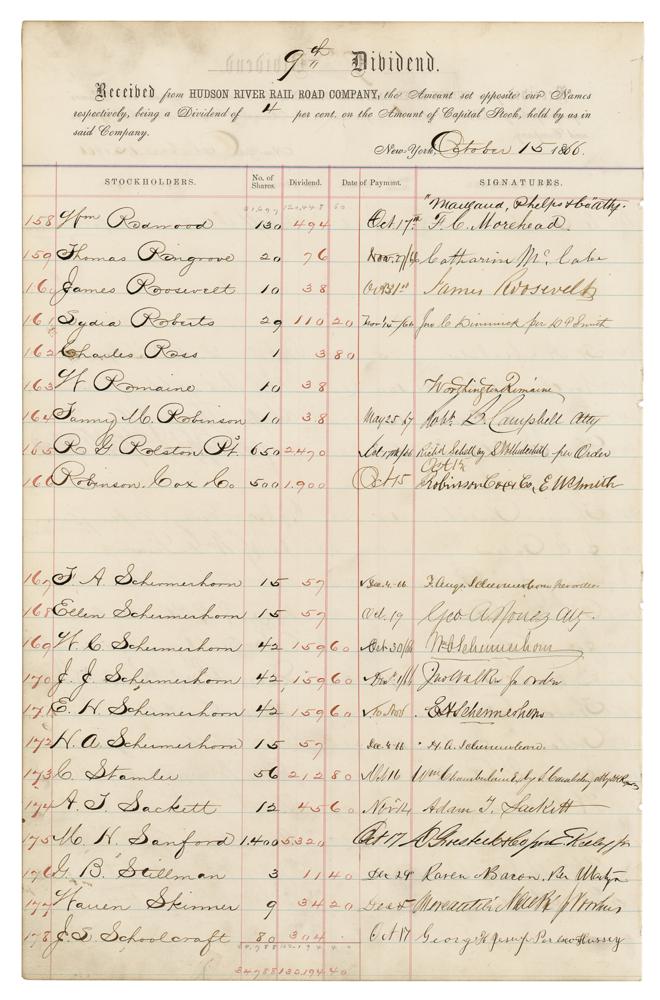 9th Dividend.
Received from HUDSON RIVER RAIL ROAD COMPANY, the Amount set opposite our Names
respectively, being a Dividend of 4 per cent. on the Amount of Capital Stock, held by us in
said Company.
New-York, October 15 1866.
STOCKHOLDERS. No. of Shares. Dividend. Date of Payment. SIGNATURES.
Phelps & Co Attys.
158 Wm Redmood 130 494 Oct 17th F. C. Morehead.
159 Thomas Ringrove 20 76 Nov. 7/66 Catharine Mc Cabe
160 James Roosevelt 10 38 Oct 31st James Roosevelt
161 Lydia Roberts 29 110 20 Jno C Dimmick per D P Smith
162 Charles Ross 1 3 80
163 W Romaine 10 38 Worthington Romaine
164 Fanny M. Robinson 10 38 May 25 67 Robt. B. Campbell Atty
165 R G Rolston Pt. 650 2.470 per Order
Oct 15
166 Robinson Cox Co 500 1.900 Oct 15 Robinson Cox & Co, E W Smith
167 F. A. Schermerhorn 15 57 Dec. 4-66 F. Aug. Schermerhorn
168 Ellen Schermerhorn 15 57 Oct. 19 Geo A Atty.
169 W C Schermerhorn 42 159 60 Oct 30/66 W C Schermerhorn
170 J. J Schermerhorn 42 159 60 Jno Walker Jr order
171 E. H Schermerhorn 42 159 60 E H Schermerhorn
172 H. A Schermerhorn 15 57 Dec. 4-66 H. A. Schermerhorn
173 C. Stamler 56 212 80 16 Wm Chamberlain
174 A. T Sackett 12 45 60 Nov 14 Adam T. Sackett
175 M. H Sanford 1.400 5.320 Oct 17
176 G. B. Stillman 3 11 40 Dec 29 Raven & Bacon. Per
177 Warren Skinner 9 34 20 Dec 5
178 J. S Schoolcraft 80 304 Oct 17 George H Jesup
34.988 130.194.40